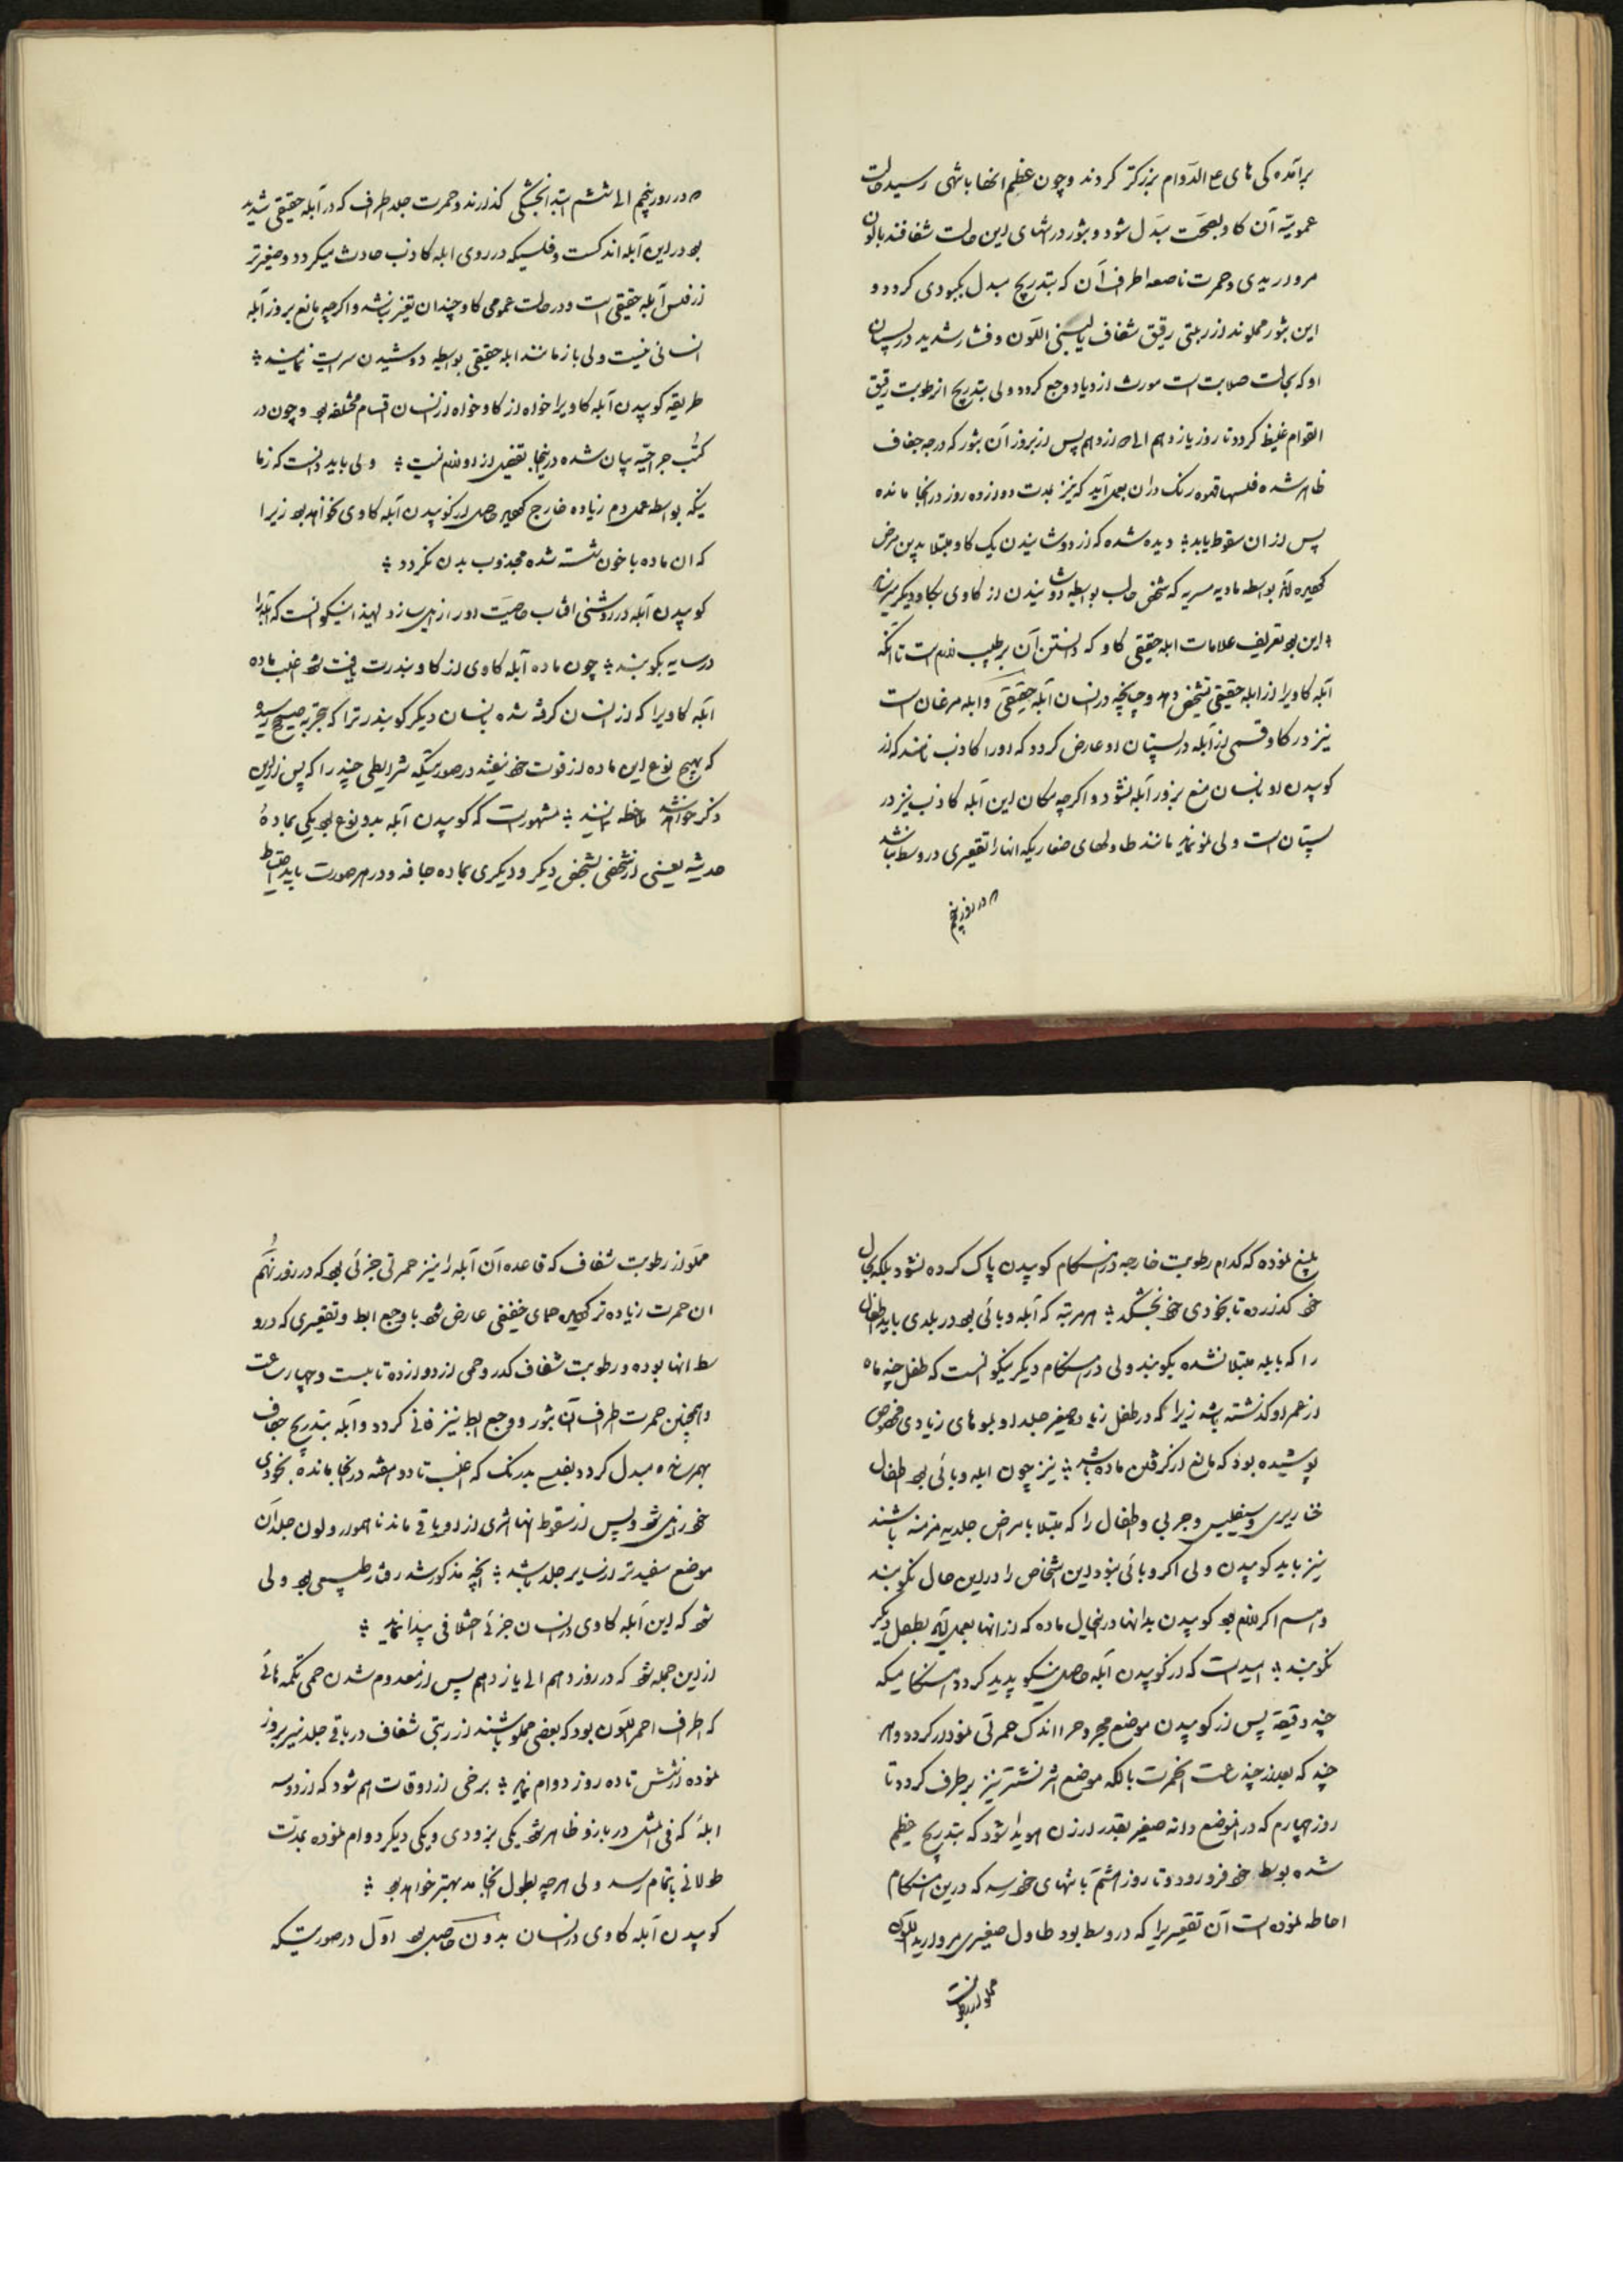 برآمده کی های علی الدوام بزرکتر کردند و چون عظم انها بانتهی رسید حالت
عمومیه آن کاو بصحت مبدل شود و بثور در انتهای این حالت شفافند بالون
مرواریدی و حمرت ناصعه اطراف آن که بتدریج مبدل بکبودی کردد و
این بثور مملوند از ربتی رقیق شفاف یا لبنی اللون و فشار شدید در پستان
او که بحالت صلابت است مورث ازدیاد وجع کردد ولی بتدریج از رطوبت رقیق
القوام غلیظ کردد تا روز یازدهم الی دوازدهم پس از بروز آن بثور که درجه جفاف
ظاهر شده فلسها قهوه رنک دران بعمل آید که نیز بمدت دوازده روز در انجا مانده
پس از ان سقوط یابد ؛ دیده شده که از دوشانیدن یک کاو مبتلا بدین مرض
بواسطه مادیه مسریه که شخص حالب بواسطه دوشانیدن از کاوی بکاو دیکر میرساند
؛ این بود تعریف علامات ابله حقیقی کاو که دانستن آن بر طبیب لازم است تا انکه
آبله کاویرا از ابله حقیقی تشخیص دهد و چنانچه در انسان آبله حقیقی و ابله مرغان است
نیز در کاو قسمی از آبله در پستان او عارض کردد که اورا کاذب نامند که از
کوبیدن او بانسان منع بروز آبله نشود و اکرچه مکان این آبله کاذب نیز در
پستان است ولی نمو نماید مانند طاولهای صغاریکه انها را تقعیری در وسط نباشد
در روز پنجم
در روز پنجم الی ششم ابتدا بخشکی کذارند و حمرت جلد اطراف که در آبله حقیقی شدید
بود در این آبله اندکست و فلسیکه در روی ابله کاذب حادث میکردد و صغیرتر
از فلس آبله حقیقی است و در حالت عمومی کاو چندان تغییر نباشد و اکرچه مانع بروز آبله
انسانی نیست ولی باز مانند ابله حقیقی بواسطه دوشیدن سرایت نمایند ؛
طریقه کوبیدن آبله کاویرا خواه از کاو خواه از انسان اقسام مختلفه بود و چون در
کتب جراحیه بیان شده در اینجا تفصیل از او لازم نیست ؛ ولی باید دانست که زما
نیکه بواسطه عمل دم زیاده خارج حاصل از کوبیدن آبله کاوی نخواهد بود زیرا
که ان ماده با خون شسته شده مجذوب بدن نکردد ؛
کوبیدن آبله در روشنی افتاب خاصیت اورا زایل سازد لهذا نیکو انست که آبله را
در سایه بکوبند ؛ چون ماده آبله کاوی از کاو بندرت یافت شود اغلب ماده
آبله کاویرا که از انسان کرفته شده بانسان دیکر کوبند زیرا که بتجربه صحیح رسیده
که بهیچ نوع این ماده از قوت خود نیفتد در صورتیکه شرایطی چند را که پس از این
ذکر خواهد شد ملاحظه نمایند ؛ مشهور است که کوبیدن آبله بدو نوع بود یکی بمادهٔ
حدیثه یعنی از شخصی بشخص دیکر و دیکری بماده جافه و در هر صورت باید احتیاط
بلیغ نموده که کدام رطوبت خارجه در هنکام کوبیدن پاک کرده نشود بلکه بحال
خود کذارده تا بخودی خود بخشکد ؛ هر مرتبه که آبله وبائی بود در بلدی باید اطفال
را که بابله مبتلا نشده بکوبند ولی در هنکام دیکر نیکو انست که طفل چند ماه
از عمر او کذشته باشد زیرا که در طفل زیاد صغیر جلد او بموهای زیادی مخصوص
پوشیده بود که مانع از کرفتن ماده باشد ؛ نیز چون ابله وبائی بود اطفال
خنازیری و سیفلیسی و جربی و اطفال را که مبتلا بامراض جلدیه مزمنه باشند
نیز باید کوبیدن ولی اکر وبائی نبود این اشخاص را در این حال نکوبند
و هم اکر لازم بود کوبیدن بدانها در انحال ماده که از انها بعمل آید بطفل دیکر
نکوبند ؛ امید است که از کوبیدن آبله حاصل نیکو پدید کردد هنکامیکه
چند دقیقه پس از کوبیدن موضع مجروح را اندک حمرتی نمودار کردد و هر
چند که بعد از چند ساعت انحمرت بالکه موضع اثر نشتر نیز برطرف کردد تا
روز چهارم که در انموضع دانه صغیر بقدر ارزن هویدا شود که بتدریج عظیم
شده بوسط خود فرو رود و تا روز هشتم بانتهای خود رسد که درین هنکام
احاطه نموده است آن تقعیریرا که در وسط بود طاول صغیری مروارید اللون
مملو از رطوبت
مملو از رطوبت شفاف که قاعده آن آبله را نیز حمرتی جزئی بود که در روز نهم
ان حمرت زیاده تر حمای خفیفی عارض شود با وجع ابط و تقعیری که در و
سط انها بوده و رطوبت شفاف کدر و حمی از دوازده تا بیست و چهار ساعت
و همچنین حمرت اطراف آن بثور و وجع ابط نیز فانی کردد و آبله بتدریج جفاف
بهم رسانده مبدل کردد بفلسی بدرنک که اغلب تا دو هفته در انجا مانده بخودی
خود زایل شود و پس از سقوط انها اثری از او باقی ماند ناهموار و لون جلد آن
موضع سفیدتر از سایر جلد باشد ؛ انچه مذکور شد رفتار طبیعی بود ولی
شود که این آبله کاوی در انسان جزئی اختلافی پیدا نماید ؛
از این جمله شود که در روز دهم الی یازدهم پس از معدوم شدن حمی تکمه هائی
که اطراف احمر اللون بود که بعضی مملو باشند از ربتی شفاف در باقی جلد نیز بروز
نموده از شش تا ده روز دوام نماید ؛ برخی از اوقات هم شود که از دو سه
ابلهٔ که فی المثل در بازو ظاهر شود یکی بزودی و یکی دیکر دوام نموده بمدت
طولانی باتمام رسد ولی هرچه بطول انجامد بهتر خواهد بود ؛
کوبیدن آبله کاوی در انسان بدون حاصل بود اول در صورتیکه